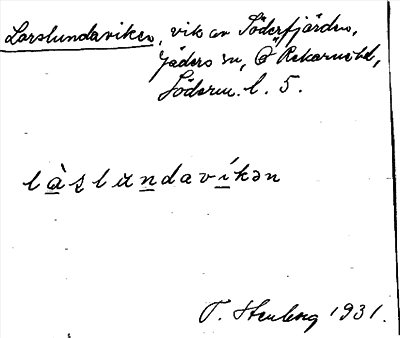 Larslundaviken, vik av Söderfjärden,
Jäders sn, Ö Rekarne hd,
Söderm. l. 5.
làslundavíkən
T. Stenberg 1931.